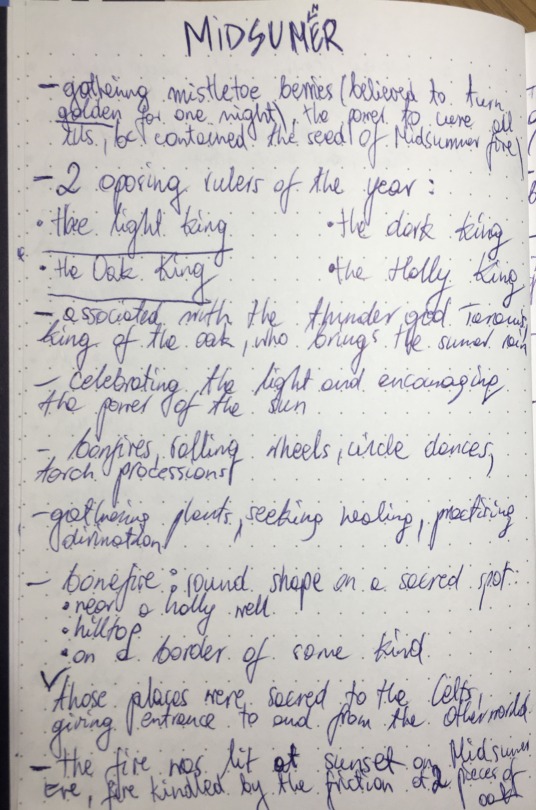 MIDSUMMER
- gathering mistletoe berries (believed to turn
golden for one night), the power to cure all
ills, bc contained the seed of Midsummer fire)
- 2 oposing rulers of the year:
• thee light king • the dark king
• the Oak King • the Holly King
- associated with the thunder god Taranus,
king of the oak, who brings the sumer rain
- celebrating the light and encouraging
the power of the sun
- bonfires, rolling wheels, circle dances,
torch processions
- gathering plants, seeking healing, practising
divination
- bonefire: round shape on a sacred spot:
• near a holly well
• hilltop
• on a border of some kind
those places were sacred to the Celts,
giving entrance to and from the Otherworld.
- the fire was lit at sunset on Midsumer
Eve, fire kindled by the friction of 2 pieces of
oak